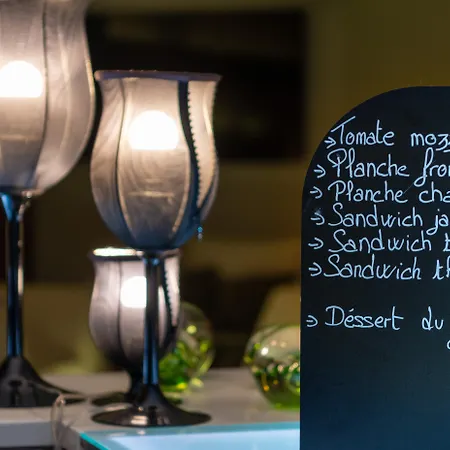 → Tomate moz
→ Planche fro
→ Planche cha
→ Sandwich ja
→ Sandwich
→ Sandwich th
→ Déssert du